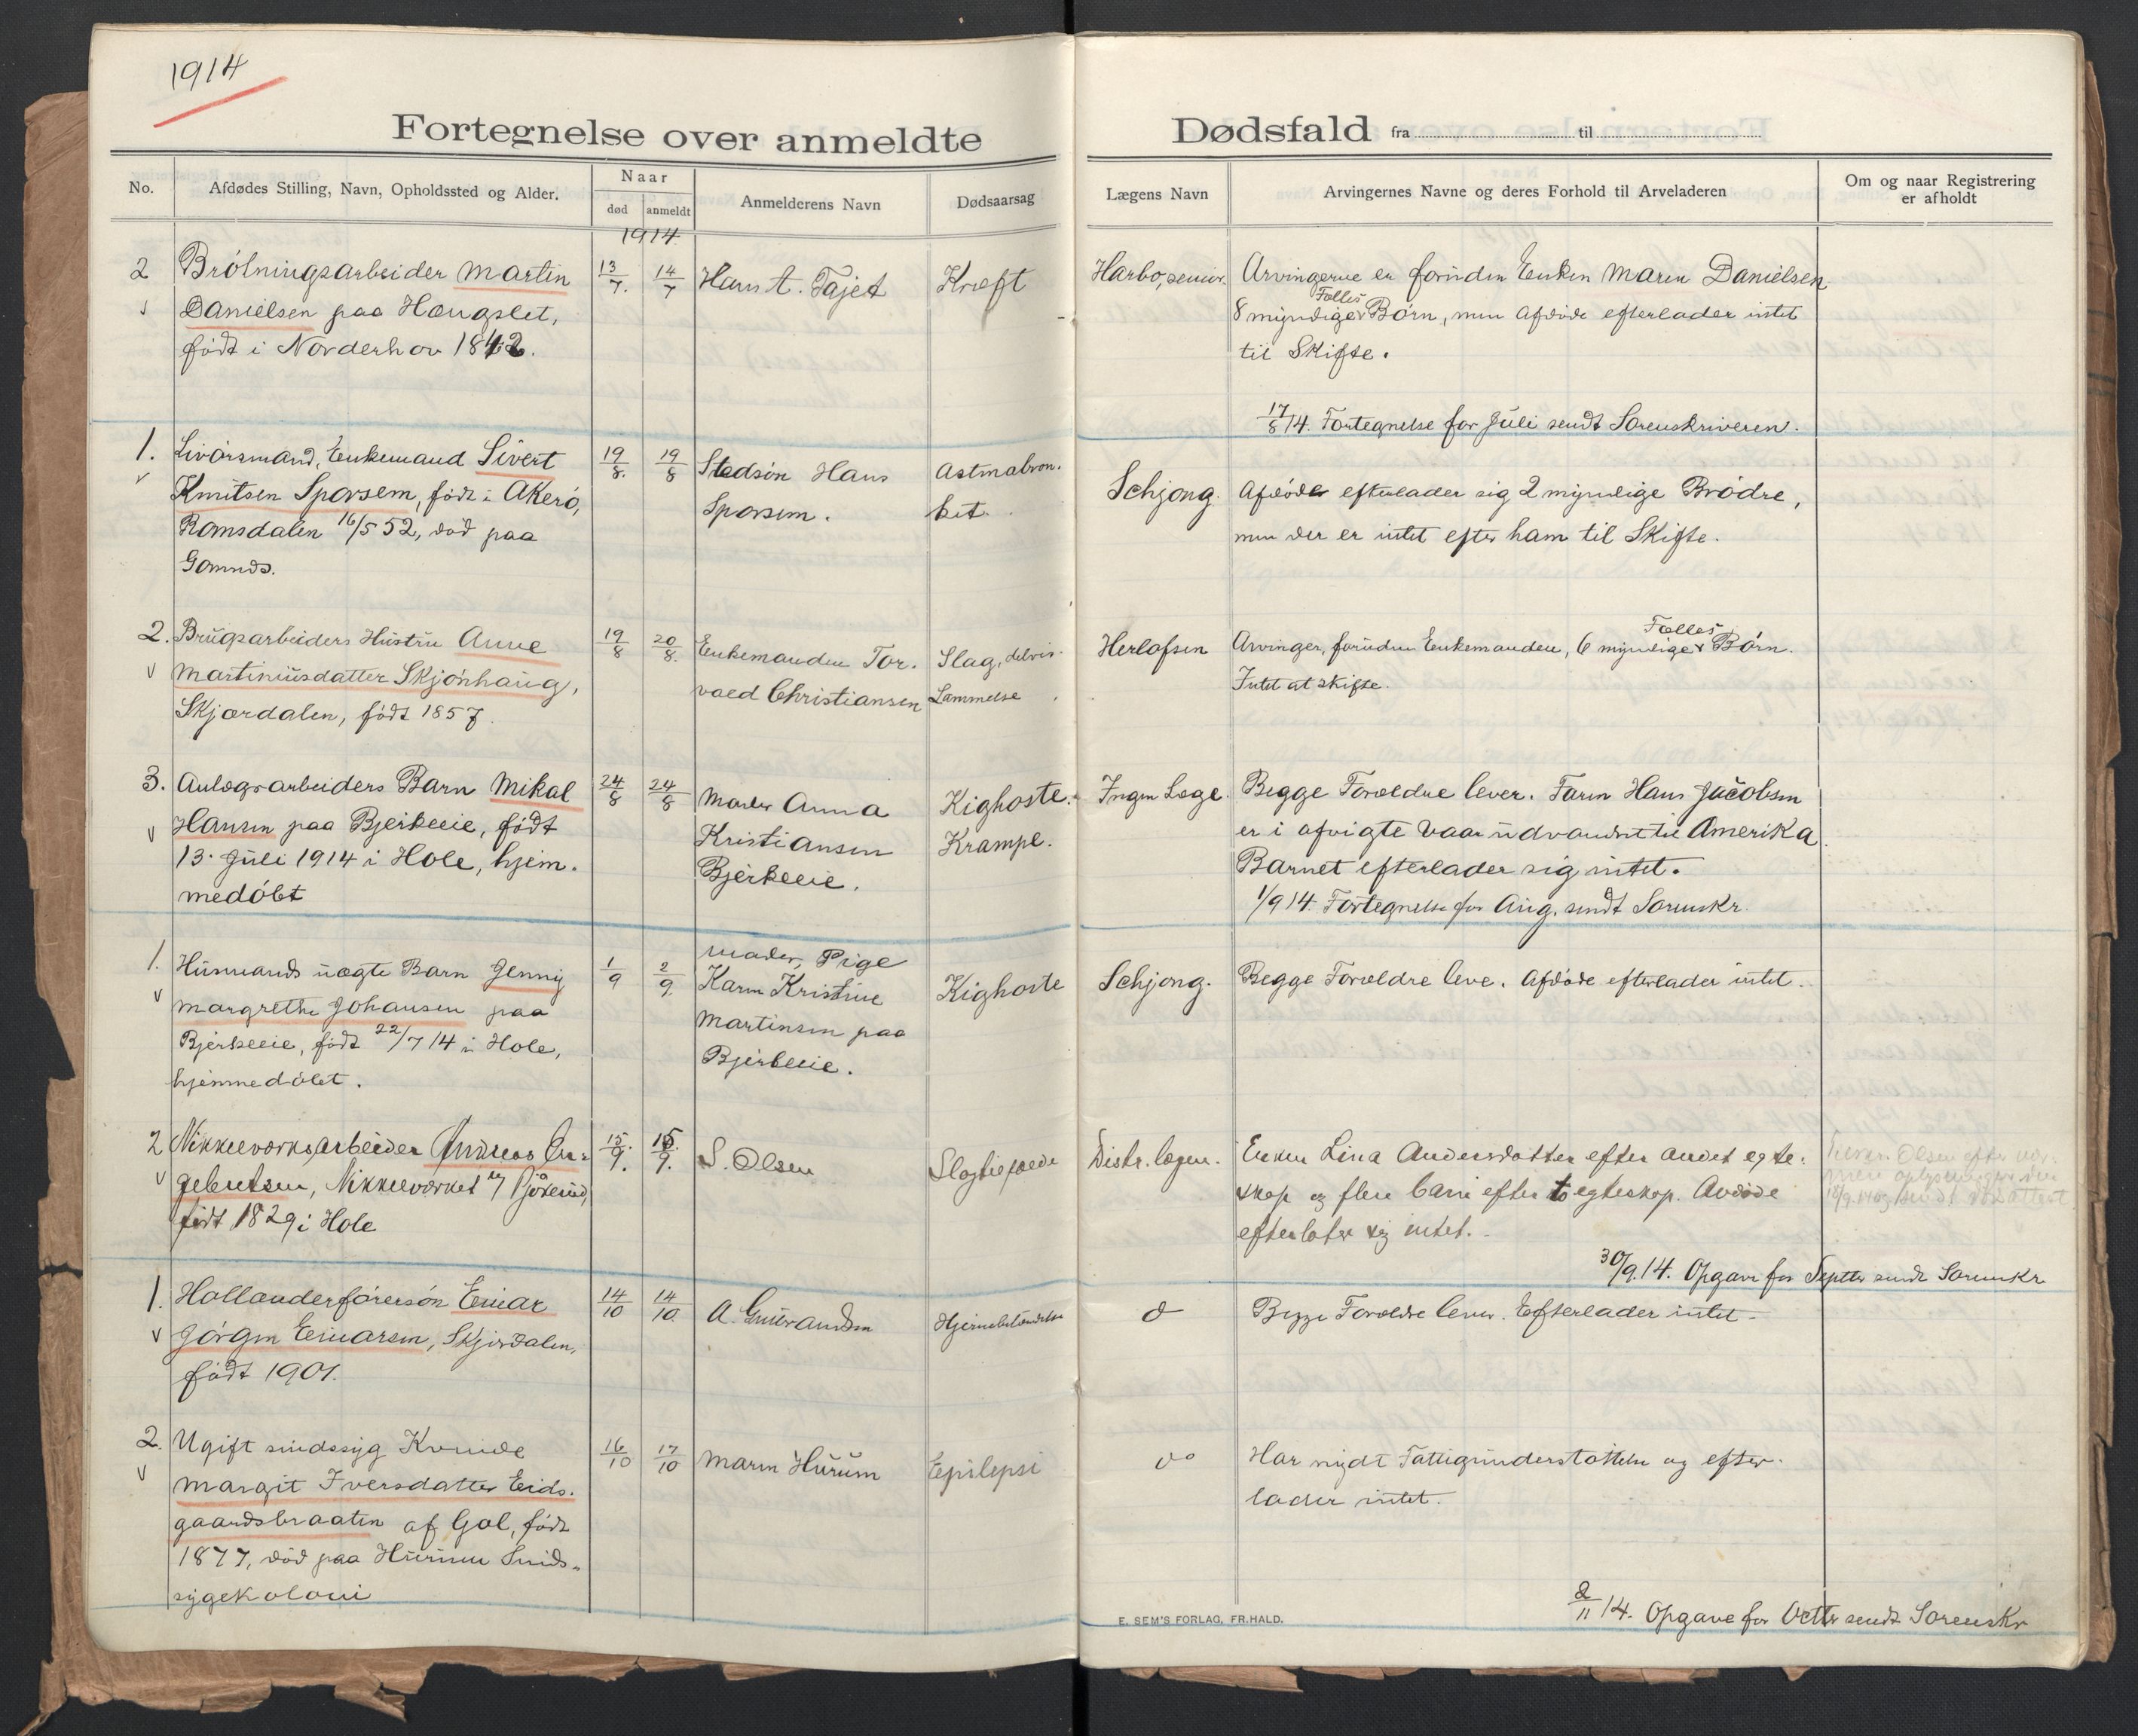 1914
Fortegnelse over anmeldte Dødsfald fra til
No.
Afdødes Stilling, Navn, Opholdssted og Alder.
Naar
død
anmeldt
Anmelderens Navn
Dødsaarsag
Lægens Navn
Arvingernes Navne og deres Forhold til Arveladeren
Om og naar Registrering
er afholdt
1914
2 Brölningsarbeider Martin
Danielsen paa Hængslet,
født i Norderhov 1842.
13/7. 14/7
Hans A. Tajet
Kræft
Harbo, senior.
Arvingerne er foruden Enken Maren Danielsen
8 myndige Fælles Børn, men Afdøde efterlader intet
til Skifte.
17/8 14. Fortegnelse for Juli sendt Sorenskriveren.
1. Livörsmand, Enkemand Sivert
Knutsen Sporsem, født i Akerö,
Romsdalen 16/5 52, død paa
Gomnæs.
19/8. 19/8
Stedsön Hans
Sporsem.
Astmabron-
kit.
Schjong.
Afdøde efterlader sig 2 myndige Brödre,
men der er intet efter ham til Skifte.
2. Brugsarbeiders Hustru Anne
Martiniusdatter Skjönhaug,
Skjærdalen, født 1857.
19/8 20/8.
Enkemanden Tor-
vald Christiansen
Slag, delvis
Lammelse
Herlofsen
Arvinger, foruden Enkemanden, 6 myndige Fælles Børn.
Intet at skifte.
3. Anlægsarbeiders Barn Mikal
Hansen paa Bjerkeeie, født
13. Juli 1914 i Hole, hjem-
medöbt
24/8 24/8
Moder Anna
Kristiansen
Bjerkeeie.
Kighoste.
Krampe.
Ingen Læge.
Begge Forældre lever. Faren Hans Jacobsen
er i afvigte Vaar udvandret til Amerika.
Barnet efterlader sig intet.
1/9 14. Fortegnelse for Aug. sendt Sorenskr.
1. Husmands uægte Barn Jenny
Margrethe Johansen paa
Bjerkeeie, født 22/7 14 i Hole,
hjemmedöbt.
1/9 2/9.
Moder, Pige
Karen Kristine
Martinsen paa
Bjerkeeie.
Kighoste
Schjong.
Begge Forældre leve. Afdøde efterlader intet.
2 Nikkelværksarbeider Andreas En-
gebretsen, Nikkelværket
født 1829 i Hole
15/9. 15/9.
S. Olsen
Distr. lægen.
Enken Lina Andersdatter efter andet egte-
skap og flere barn efter to egteskap. Avdøde
efterlater sig intet.
30/9.14. Opgave for Septbr sendt Sorenskr
1. Hollænderförersön Einar
Jörgen Einarsen, Skjærdalen,
født 1901.
14/10 14/10.
A. Gulbrandsen
Hjernebetændelse
do
Begge Forældre lever. Efterlader intet.
2. Ugift sindssyg Kvinde
Margit Iversdatter Eids-
gaardsbraaten af Gol, født
1877, død paa Hurum Sinds-
sygekoloni
16/10 17/10
Maren Hurum
Epilepsi
do
Har nydt Fattigunderstøttelse og efter-
lader intet.
2/11 14. Opgave for Octbr sendt Sorenskr
E. SEM'S FORLAG, FR.HALD.